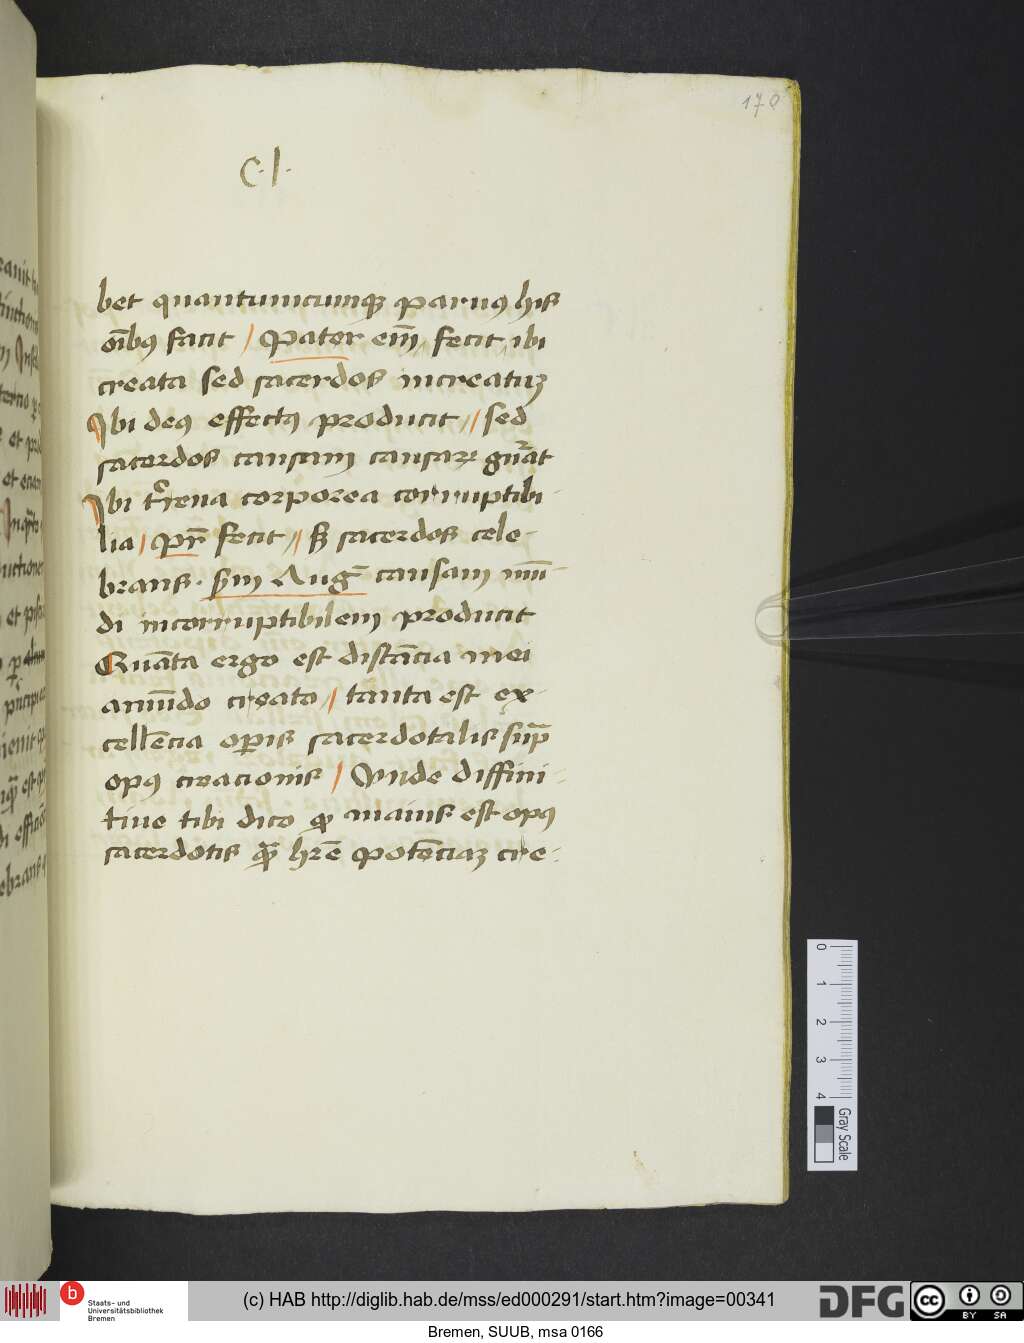 170
C·l·
bet quantumcumqꝫ paruꝰ hijs
oībꝰ facit / Pater em̄ fecit ibi
creata sed sacerdos increatuꝫ
Ibi deꝰ effectꝰ producit // sed
sacerdos causam causarꝫ gn̄at
Ibi tr̄rena corporea corruptibi-
lia / Pr̄ fecit // sꝫ sacerdos cele-
brans. sm̄ Auḡ causam mū-
di incorruptibilem producit
Quāta ergo est distācia mei
a mūdo creato / tanta est ex-
cellēcia oꝑis sacerdotalis sup̄
opꝰ creacionis / Vnde diffini-
tiue tibi dico ꝙ maius est opꝰ
sacerdotis qꝫ hr̄e potēciaꝫ cre-
0
1
2
3
4
Gray Scale
b
Staats- und
Universitätsbibliothek
Bremen
(c) HAB http://diglib.hab.de/mss/ed000291/start.htm?image=00341
DFG
cc
BY SA
Bremen, SUUB, msa 0166